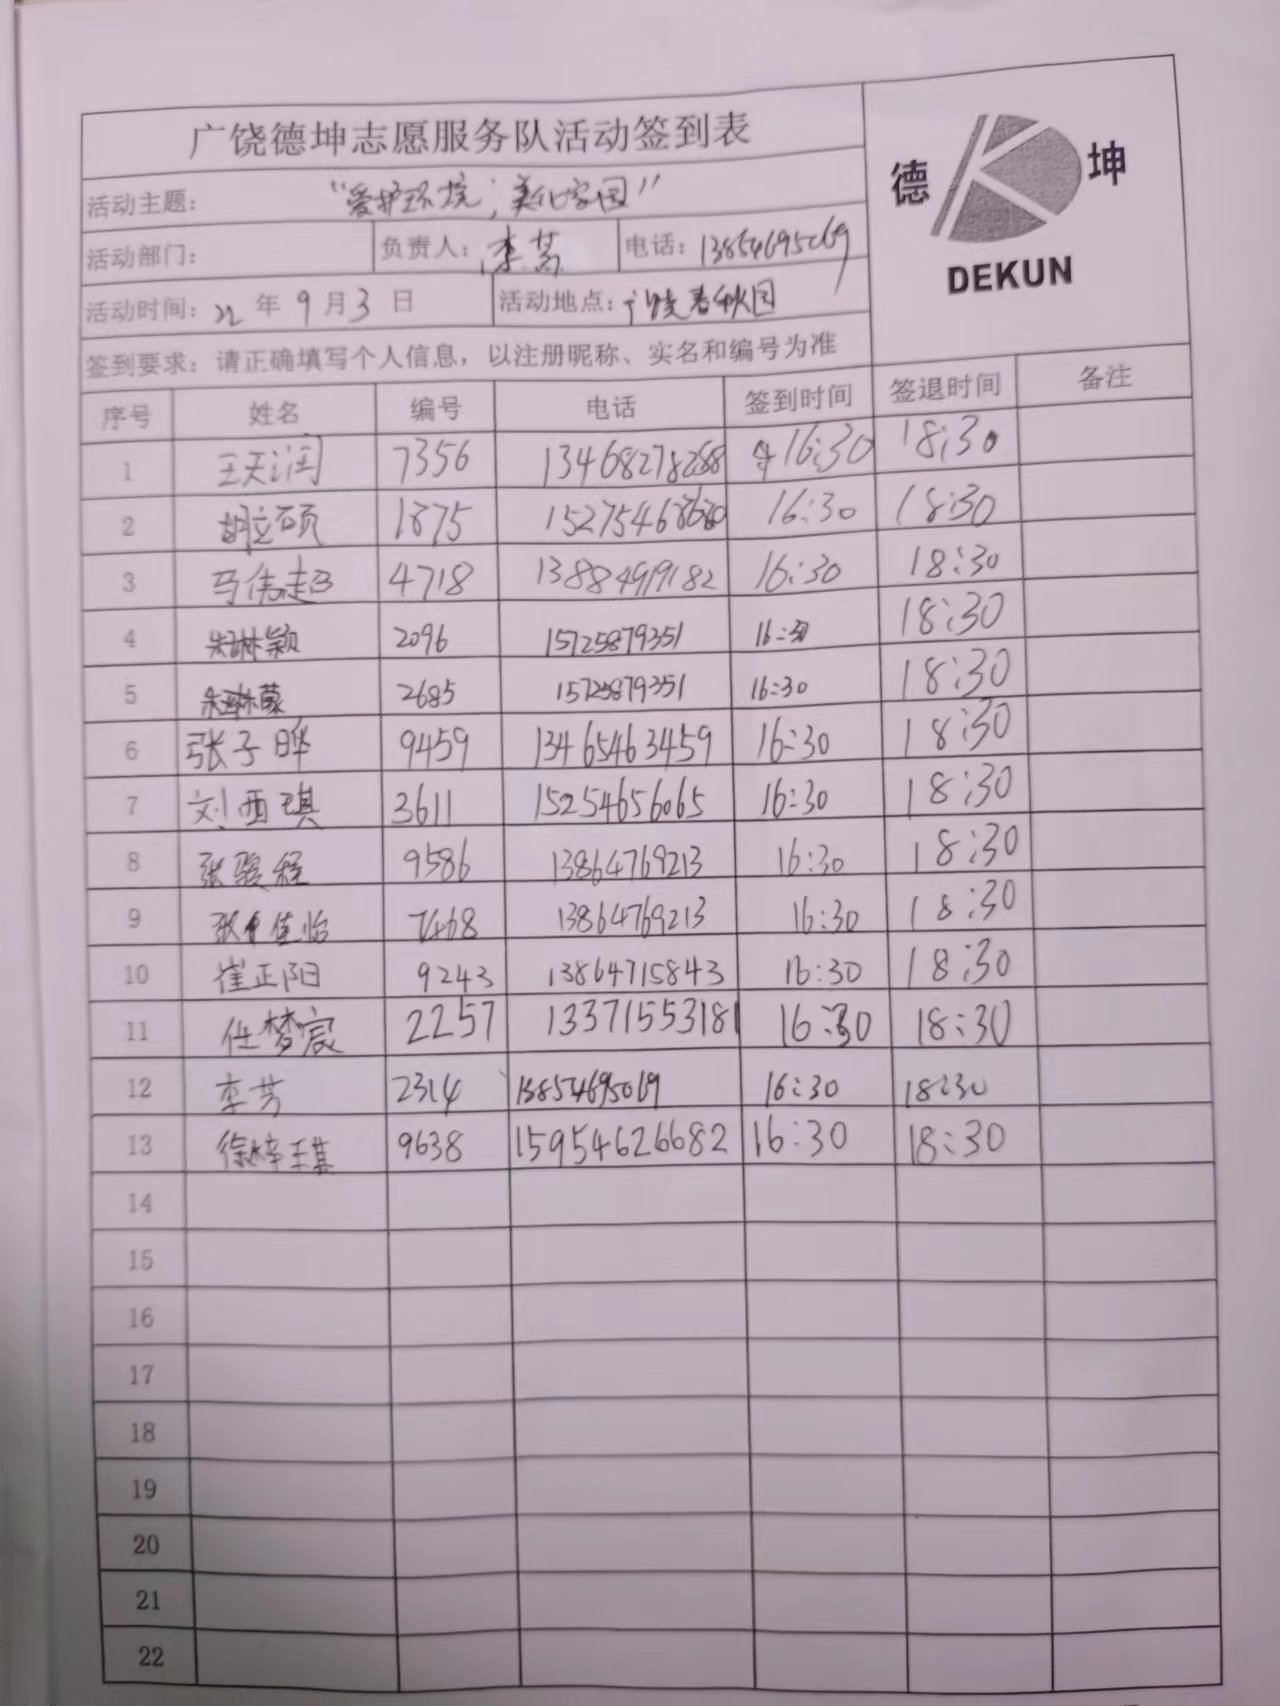 广饶德坤志愿服务队活动签到表
德 坤
DEKUN
活动主题： “爱护环境，美化家园”
活动部门： 负责人：李芳 电话：13854695069
活动时间：22 年 9 月 3 日 活动地点：广饶春秋园
签到要求：请正确填写个人信息，以注册昵称、实名和编号为准
序号 姓名 编号 电话 签到时间 签退时间 备注
1 王天润 7356 13468278288 16:30 18:30
2 胡立硕 1875 16:30 18:30
3 马伟超 4718 13884919182 16:30 18:30
4 朱琳颖 2096 15725879351 16:30 18:30
5 朱琳蒙 2685 15725879351 16:30 18:30
6 张子晔 9459 13465463459 16:30 18:30
7 刘西琪 3611 15254656065 16:30 18:30
8 张骏程 9586 13864769213 16:30 18:30
9 张佳怡 7468 13864769213 16:30 18:30
10 崔正阳 9243 13864715843 16:30 18:30
11 任梦宸 2257 13371553181 16:30 18:30
12 李芳 2314 13854695069 16:30 18:30
13 徐梓琪 9638 15954626682 16:30 18:30
14
15
16
17
18
19
20
21
22